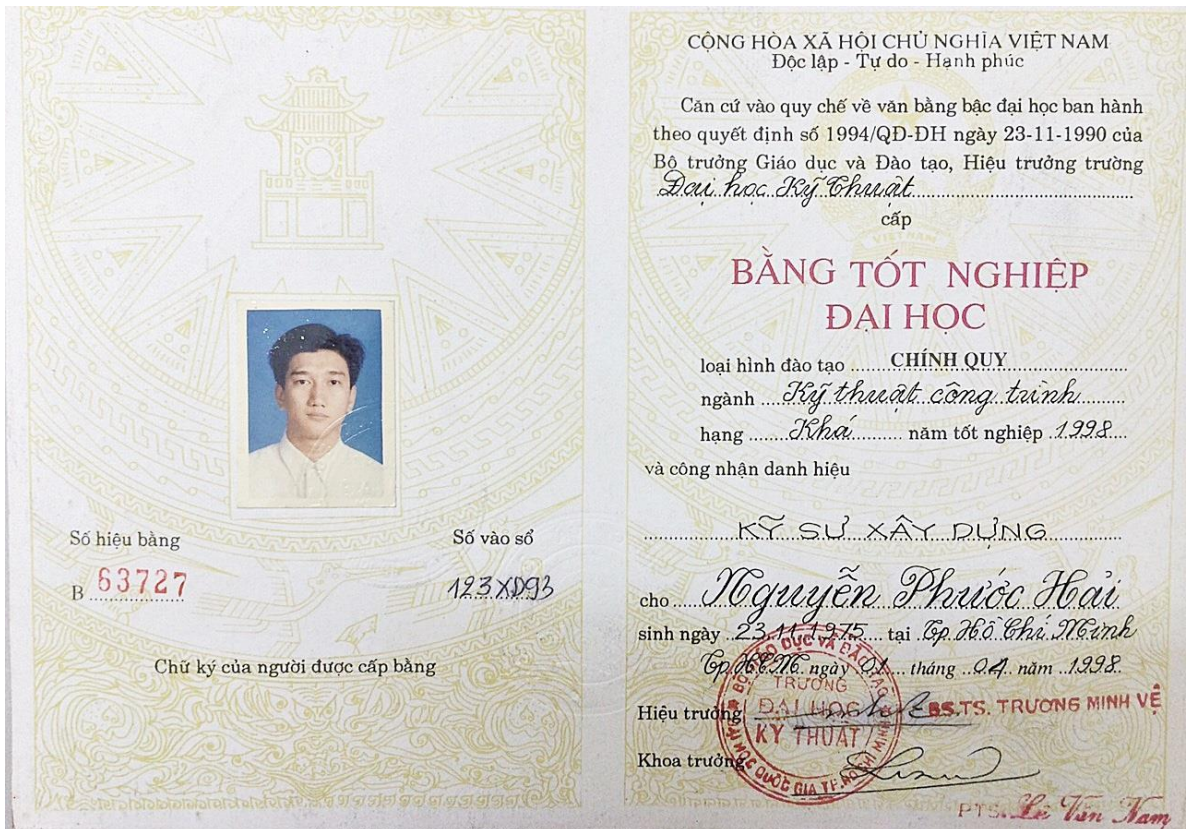 Số hiệu bằng
B 63727
Số vào sổ
123XD93
Chữ ký của người được cấp bằng
CỘNG HÒA XÃ HỘI CHỦ NGHĨA VIỆT NAM
Độc lập - Tự do - Hạnh phúc
Căn cứ vào quy chế về văn bằng bậc đại học ban hành
theo quyết định số 1994/QD-ĐH ngày 23-11-1990 của
Bộ trưởng Giáo dục và Đào tạo, Hiệu trưởng trường
Đại học Kỹ Thuật
cấp
BẰNG TỐT NGHIỆP
ĐẠI HỌC
loại hình đào tạo CHÍNH QUY
ngành Kỹ thuật công trình
hạng Khá năm tốt nghiệp 1998
và công nhận danh hiệu
KỸ SƯ XÂY DỰNG
cho Nguyễn Phước Hải
sinh ngày 23.11.1975 tại Tp. Hồ Chí Minh
Tp.HCM. ngày 01 tháng 04 năm 1998
Hiệu trưởng TS. TRƯƠNG MINH VỆ
Khoa trưởng
PTS. Lê Văn Nam
BỘ GIÁO DỤC VÀ ĐÀO TẠO
TRƯỜNG
ĐẠI HỌC
KỸ THUẬT
ĐẠI HỌC QUỐC GIA TP. HỒ CHÍ MINH